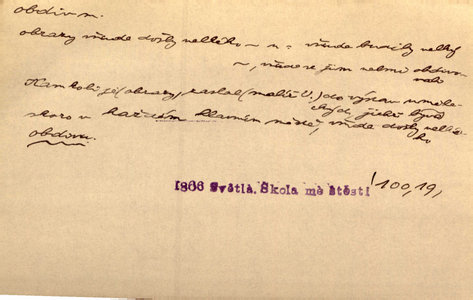 obdiv m.
obrazy všude došly velkého ~ u = všude budily velký
~, všude se jim velmi obdivo
valo
Kamkoli je (obrazy) zaslal (malíř U.) do výstav uměle
ckých, jichž bývá
skoro v každém hlavním městě, všude došly velké
ho
obdivu.
1866 Světlá. Škola mé štěstí / 100, 19,